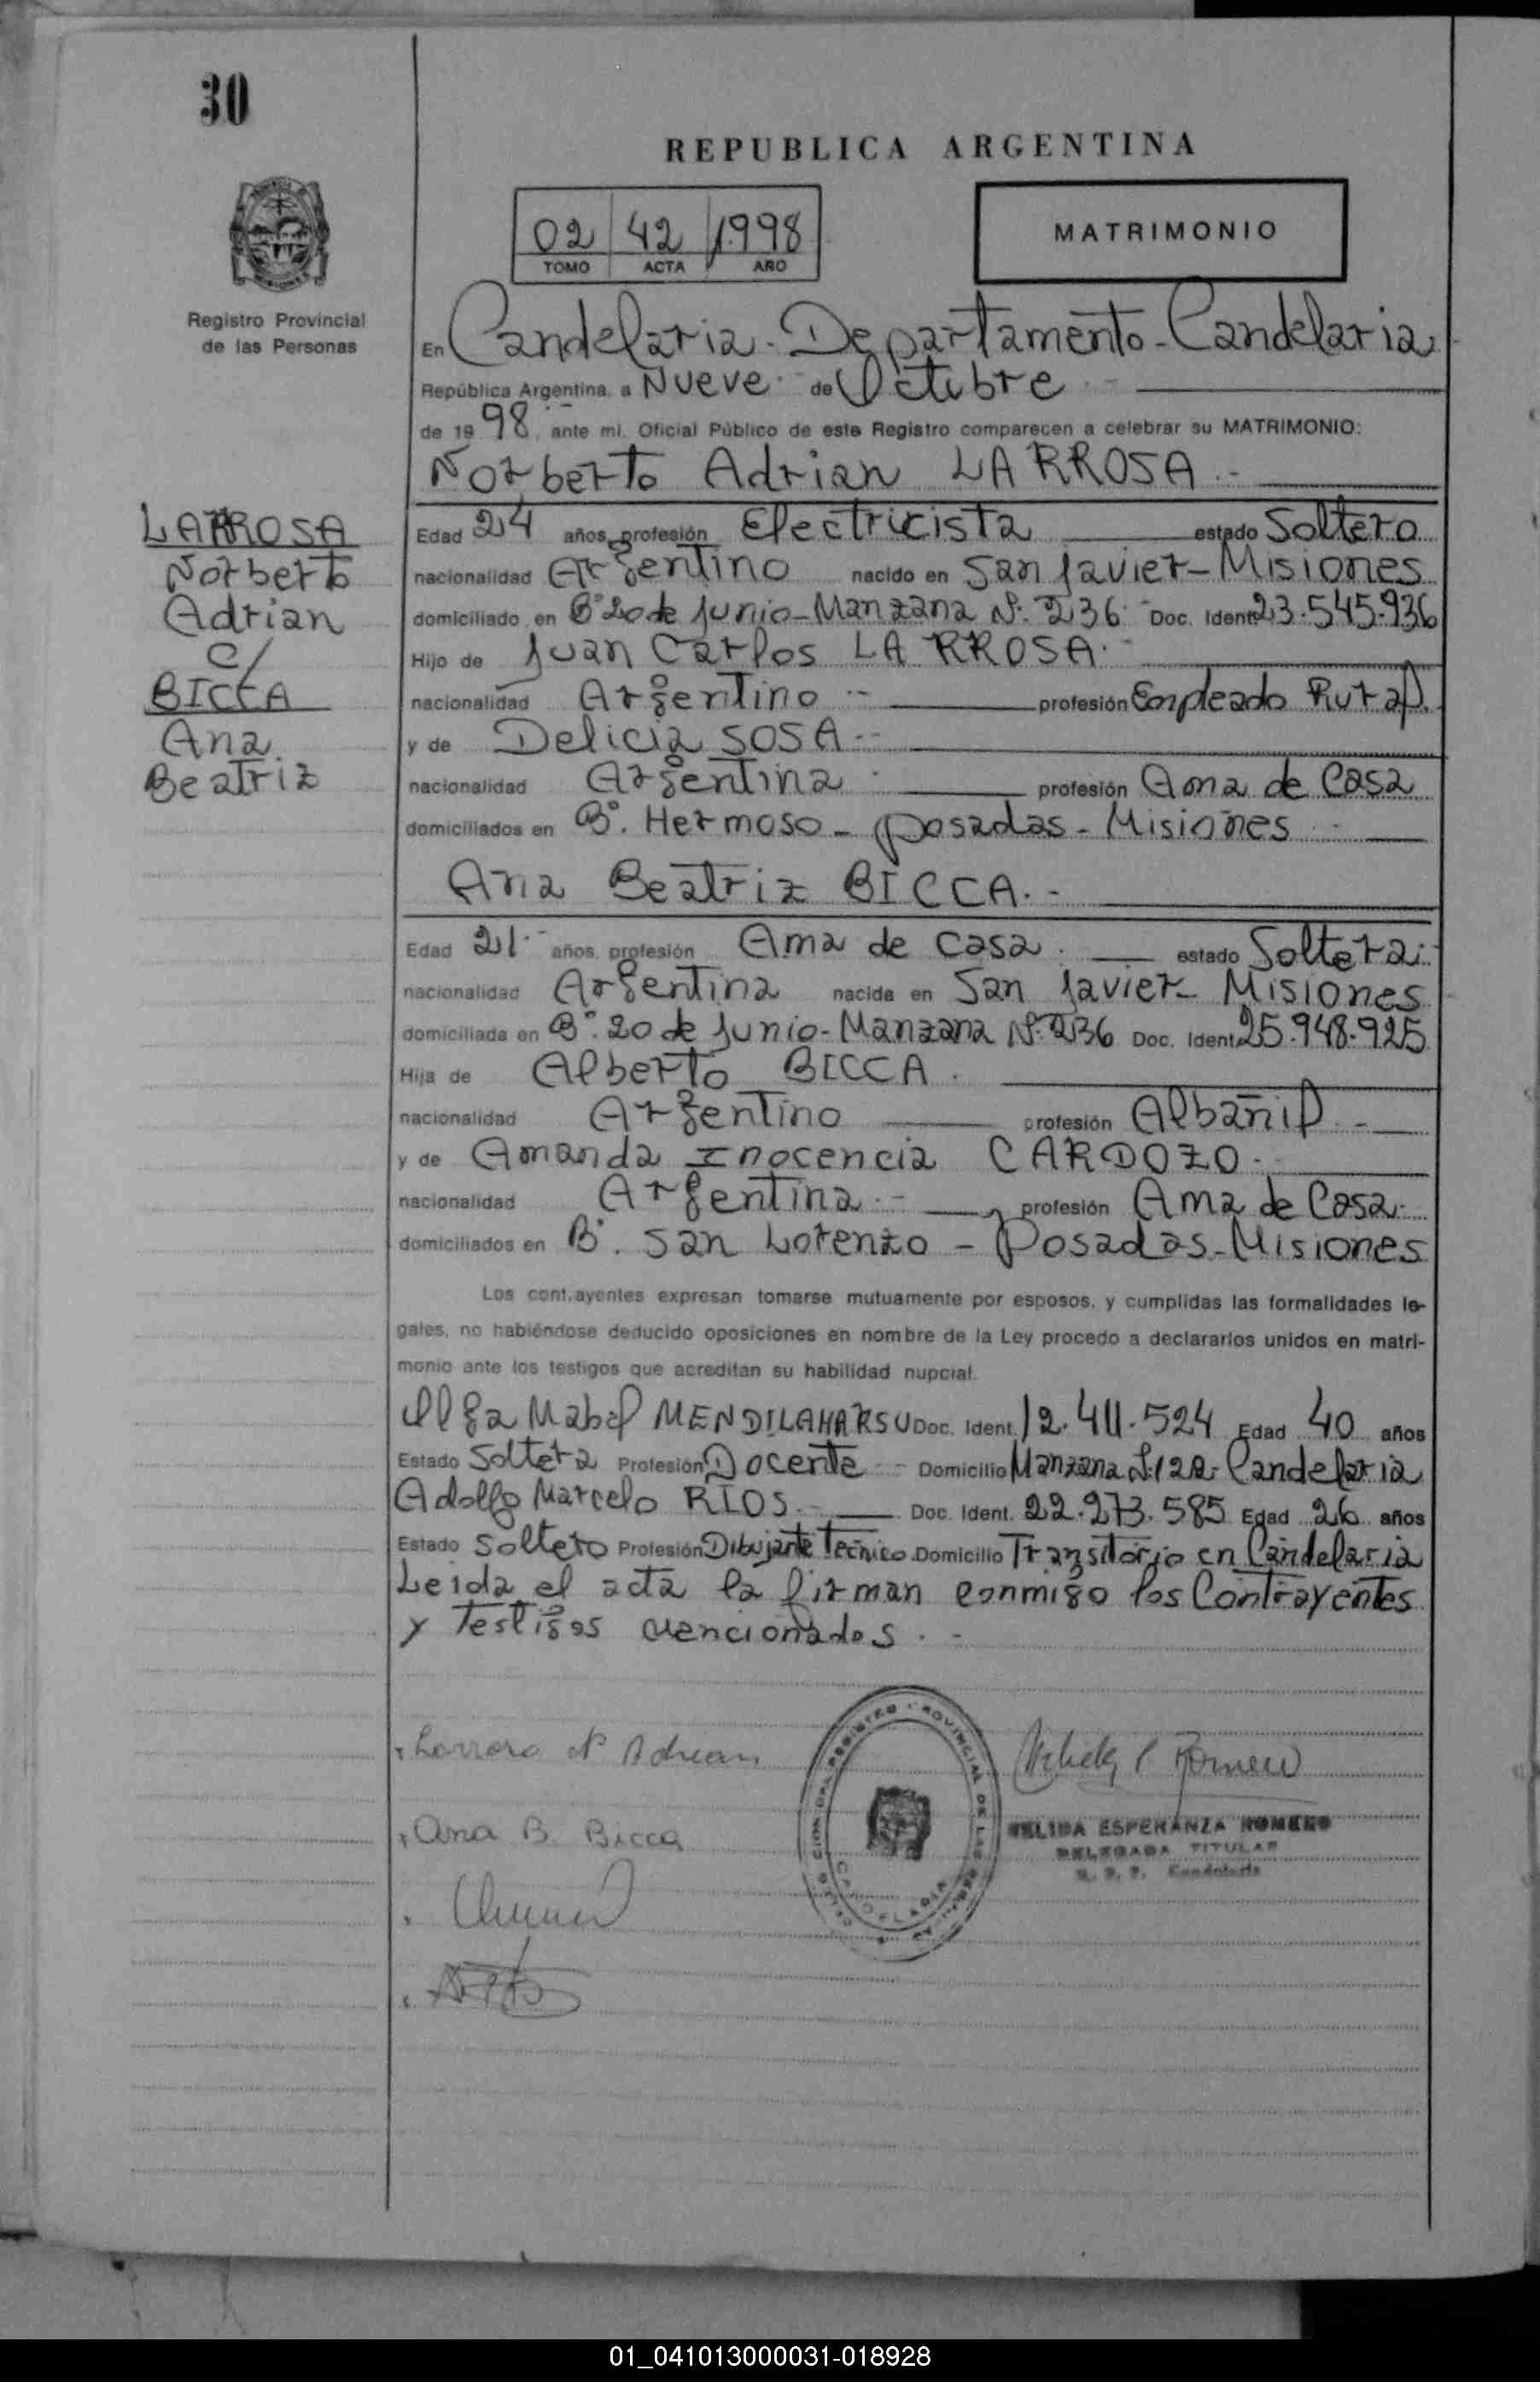 30
REPUBLICA ARGENTINA
02 42 1998
TOMO ACTA AÑO
MATRIMONIO
Registro Provincial
de las Personas
En Candelaria - Departamento - Candelaria
República Argentina, a Nueve de Octubre
de 1998, ante mí, Oficial Público de este Registro comparecen a celebrar su MATRIMONIO:
Norberto Adrian LARROSA.-
LARROSA
Norberto
Adrian
c/
BICCA
Ana
Beatriz
Edad 24 años, profesión Electricista estado Soltero
nacionalidad Argentino nacido en San Javier - Misiones
domiciliado en B° 20 de Junio - Manzana N° 236 Doc. Ident. 23.545.936
Hijo de Juan Carlos LARROSA.-
nacionalidad Argentino profesión Empleado Rural.
y de Delicia SOSA.-
nacionalidad Argentina profesión Ama de Casa
domiciliados en B°. Hermoso - Posadas - Misiones
Ana Beatriz BICCA.-
Edad 21 años, profesión Ama de casa. estado Soltera.
nacionalidad Argentina nacida en San Javier - Misiones
domiciliada en B°. 20 de Junio - Manzana N° 236 Doc. Ident. 25.948.925
Hija de Alberto BICCA.
nacionalidad Argentino profesión Albañil.-
y de Amanda Inocencia CARDOZO.-
nacionalidad Argentina.- profesión Ama de Casa.
domiciliados en B°. San Lorenzo - Posadas - Misiones
Los contrayentes expresan tomarse mutuamente por esposos, y cumplidas las formalidades le-
gales, no habiéndose deducido oposiciones en nombre de la Ley procedo a declararlos unidos en matri-
monio ante los testigos que acreditan su habilidad nupcial.
Olga Mabel MENDILAHARSU Doc. Ident. 12.411.524 Edad 40 años
Estado Soltera Profesión Docente - Domicilio Manzana Candelaria
Adolfo Marcelo RIOS.- Doc. Ident. 22.273.585 Edad 26 años
Estado Soltero Profesión Dibujante Tecnico Domicilio Transitorio en Candelaria
Leida el acta la firman conmigo los Contrayentes
y Testigos mencionados.-
Larrosa N Adrian
Ana B. Bicca
NELIDA ESPERANZA ROMERO
DELEGADA TITULAR
R. P. P. Candelaria
REGISTRO PROVINCIAL DE LAS PERSONAS
CANDELARIA
01_041013000031-018928